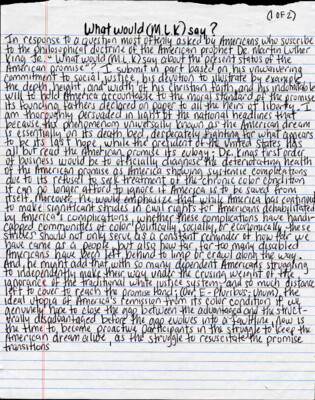 (1 OF 2)
What would (M.L.K) say?
In response to a question most often asked by Americans who suscribe
to the philosophical doctrine of the American prophet Dr. Martin Luther
King Jr. "What would (M.L.K) say about the present status of the
American promise"? I submit in part based on his unwavering
commitment to social justice, his devotion to illustrate by example
the depth, height, and width of his Christian faith, and his indomitable
will to hold America accountable to the moral standard of the promise
its founding fathers declared on paper to all the heirs of liberty. I
am thoroughly persuaded in light of the national headlines that
because this phenomenon universally known as the American dream
is essentially on its death bed, desperately fighting for what appears
to be its last hope, while the president of the United States has
all but read the American promise its eulogy. Dr. King's first order
of business would be to officially diagnose the deteriorating health
of the American promise as America showing systemic complications
due to its refusal to seek treatment of the chronic color condition
it can no longer afford to ignore if America is to be saved from
itself. Moreover, he would emphasize that while America has continued
to make significant strides in civil rights for Americans debilitated
by America's complications, whether these complications have handi-
capped communities of color politically, socially, or economically these
strides should not only serve as a constant reminder of how far we
have came as a people, but also how far, far too many disabled
Americans have been left behind to limp or crawl along the way.
And, he might add that with so many dependent Americans struggling
to independently make their way under the crushing weight of the
ignorance of the traditional white justice system, and so much distance
left to cover to reach the promise land; (Our E-Pluribus-Unum), the
ideal utopia of America's remission from its color condition if we
genuinely hope to close the gap between the advantaged and the struct-
urally disadvantaged before the gap evolves into a faultline, now is
the time to become proactive participants in the struggle to keep the
American dream alive, as the struggle to resuscitate the promise
transitions